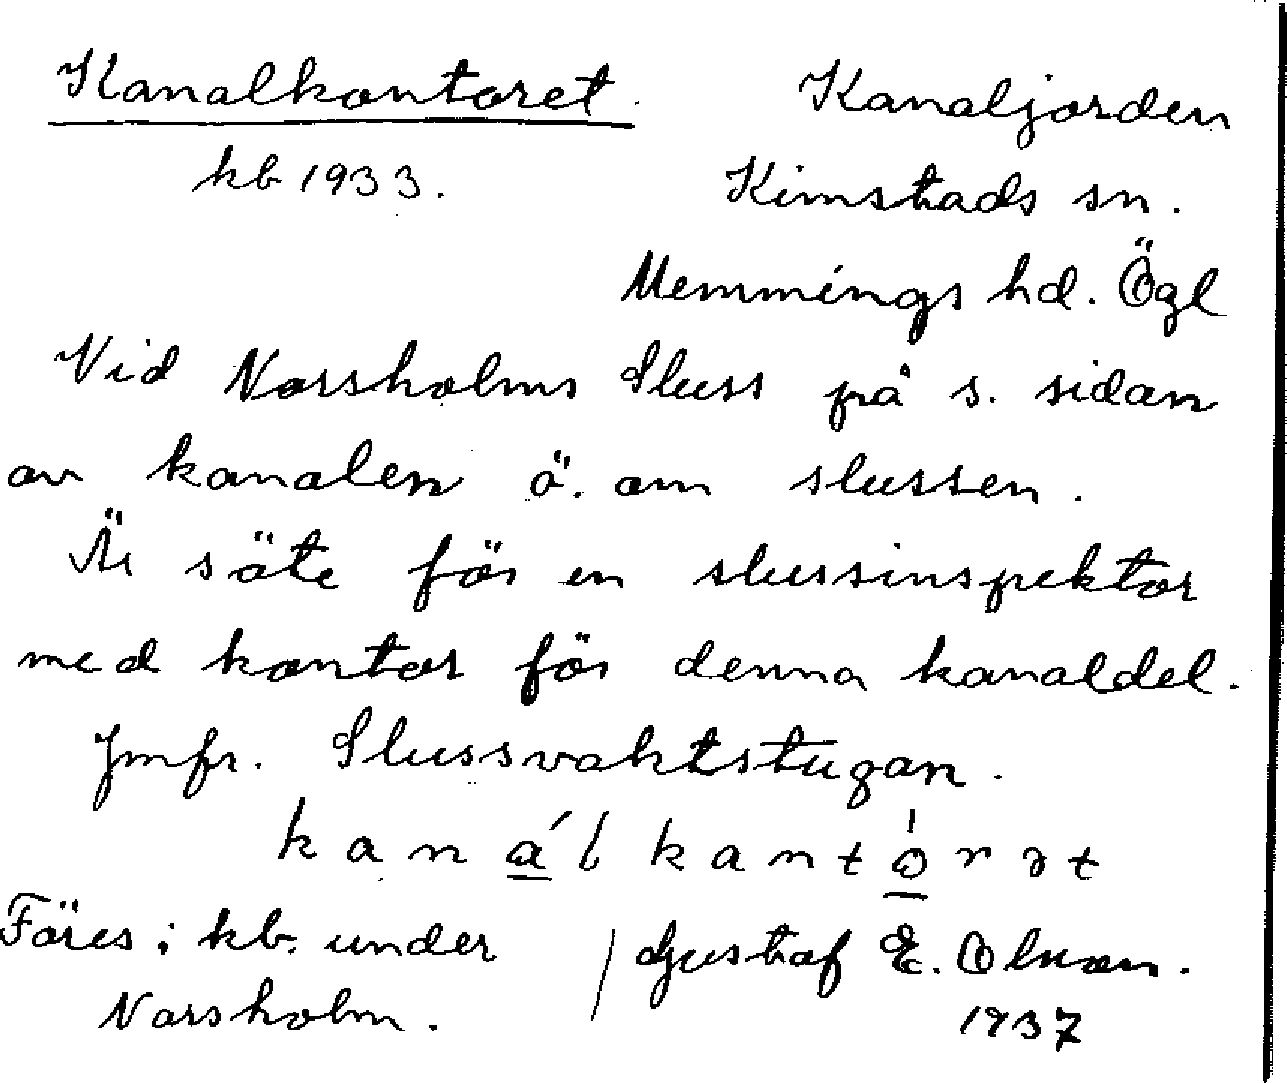 Kanalkontoret. Kanaljorden
kb 1933. Kimstads sn.
Memmings hd. Ögl
Vid Norsholms Sluss på s. sidan
av kanalen ö. om slussen.
Är säte för en slussinspektor
med kontor för denna kanaldel.
Jmfr. Slussvaktstugan.
kanálkantórət
Föres i kb. under / Gustaf E. Olsson.
Norsholm. 1937